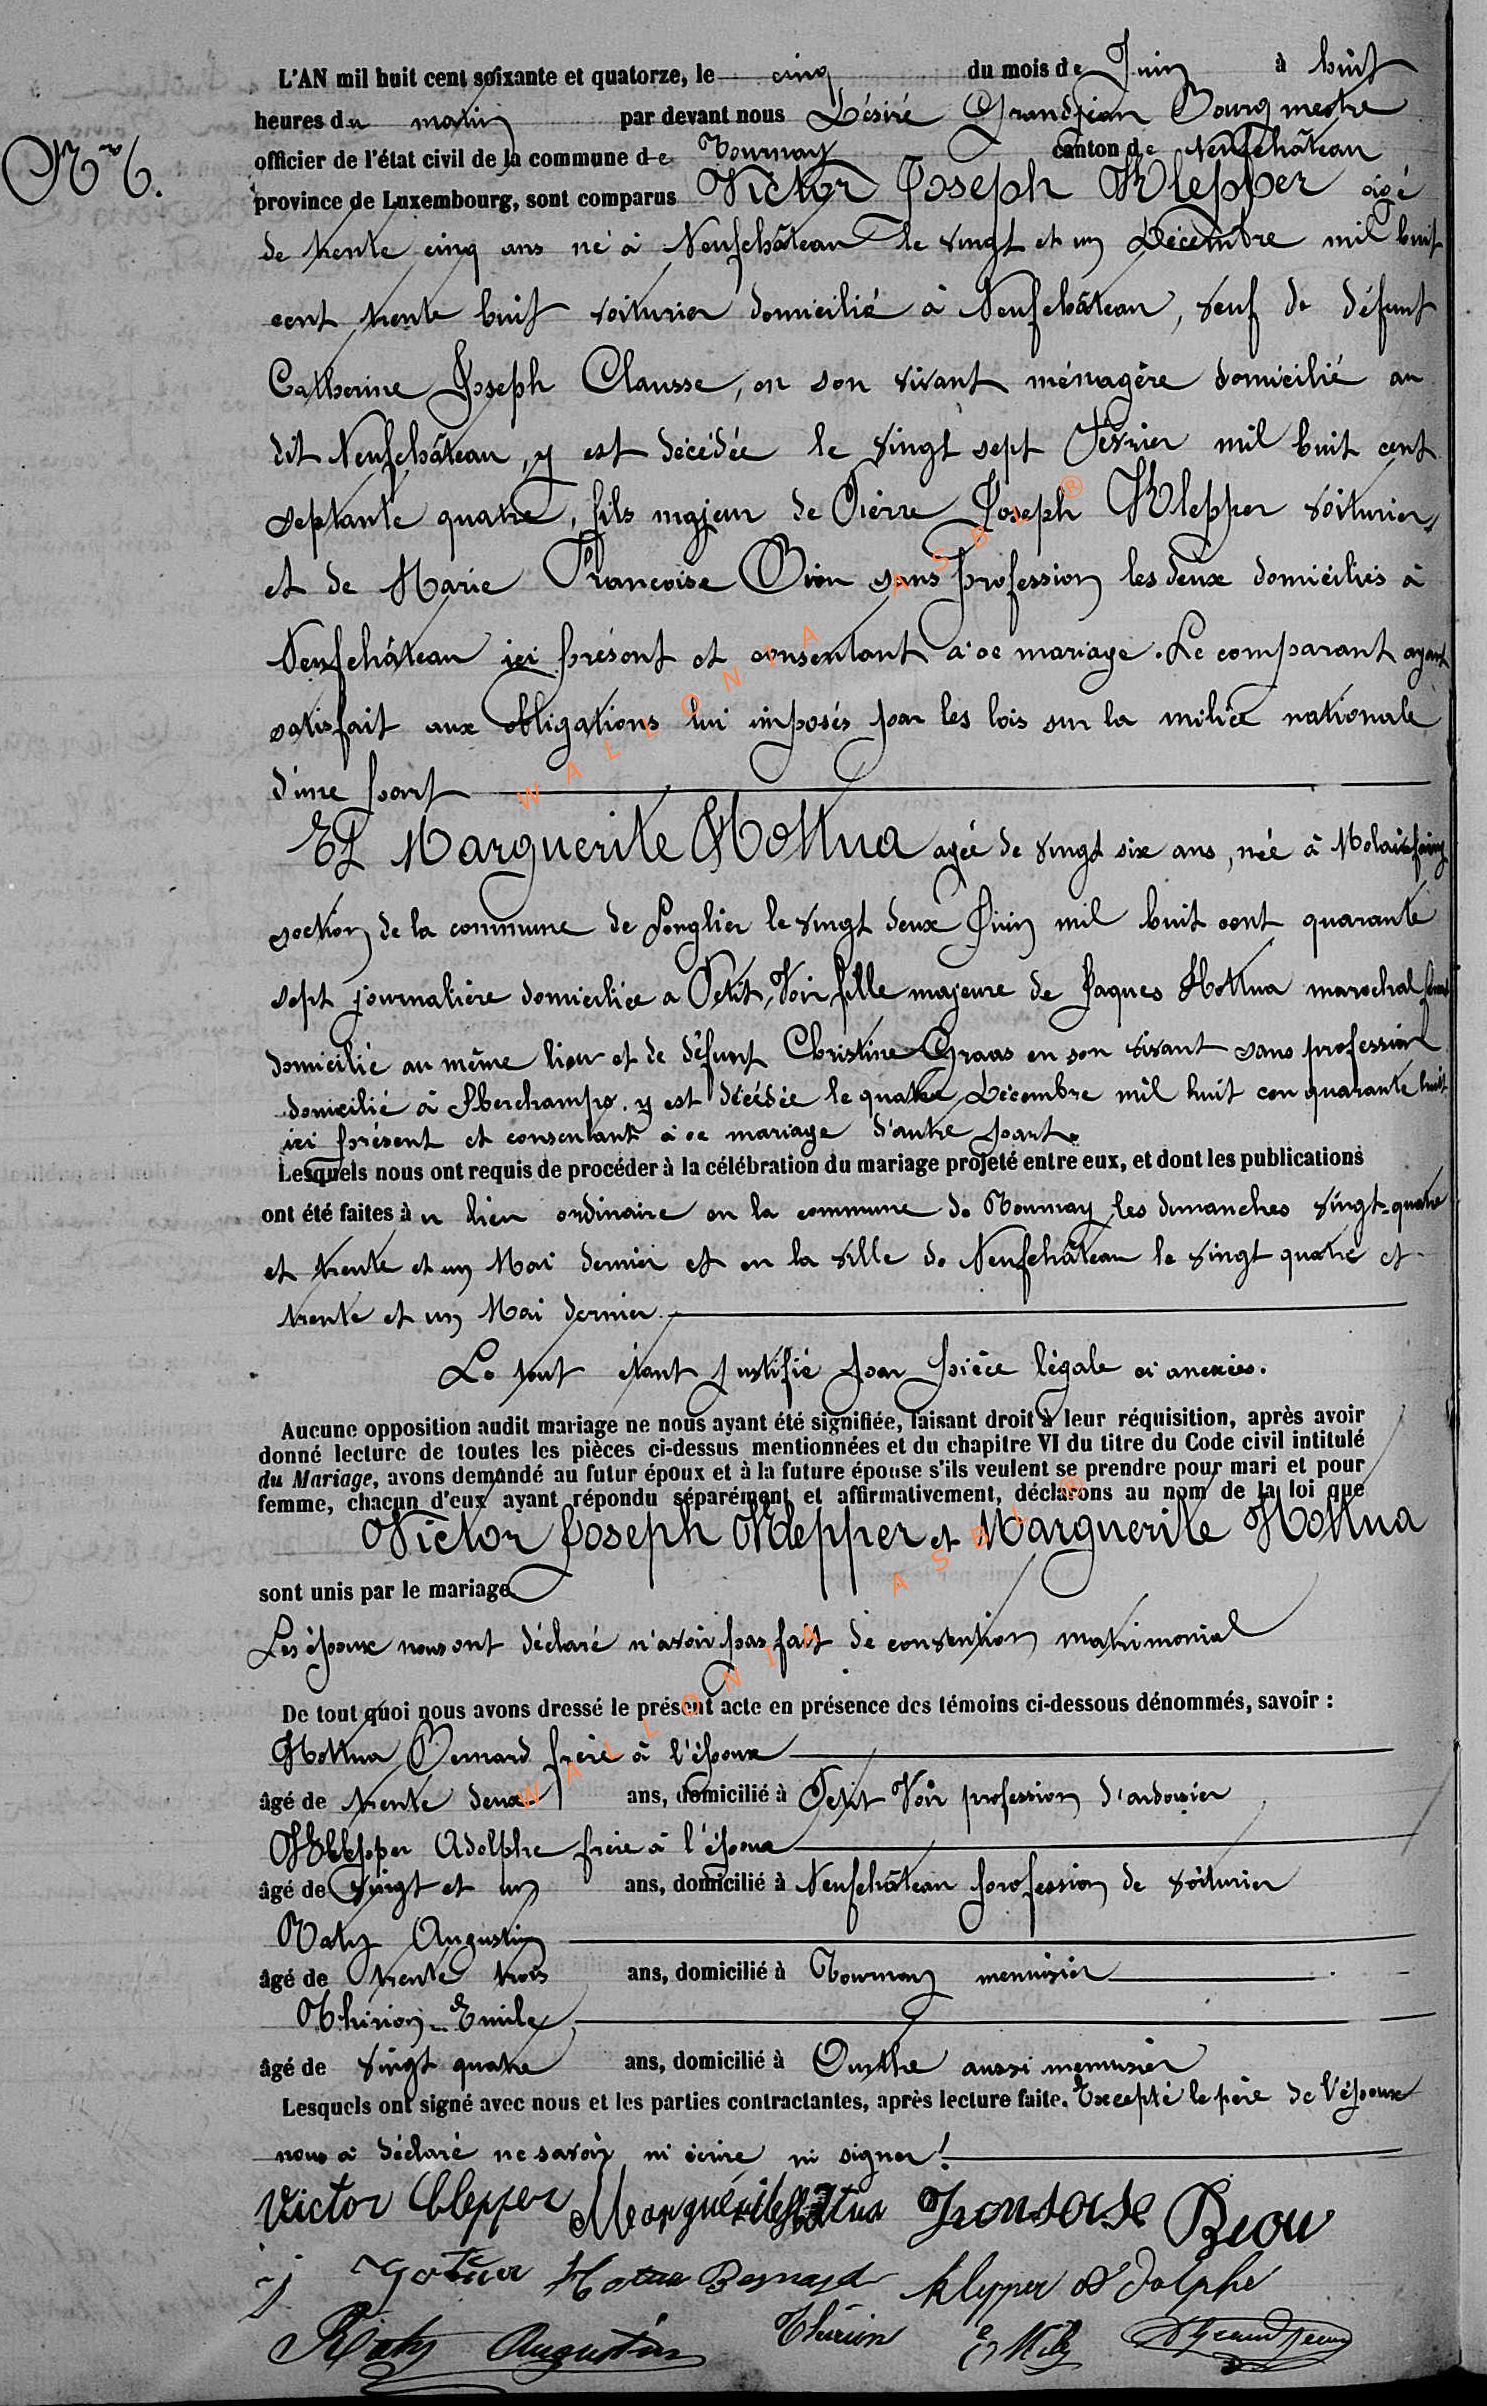 L'AN mil huit cent soixante et quatorze, le cinq du mois de Juin à huit
heures du matin par devant nous Désiré Grandjean Bourgmestre
officier de l'état civil de la commune de Tournay canton de Neufchâteau
N° 6.
province de Luxembourg, sont comparus Victor Joseph Klepper agé
de trente cinq ans né à Neufchâteau le vingt et un Décembre mil huit
cent trente huit voiturier domicilié à Neufchâteau, veuf de défunt
Catherine Joseph Clausse, en son vivant ménagère domicilié au
dit Neufchâteau, y est décédée le vingt sept Février mil huit cent
septante quatre, fils majeur de Pierre Joseph Klepper voiturier
et de Marie Francoise Bion sans profession les deux domiciliés à
Neufchâteau ici présent et consentant à ce mariage. Le comparant ayant
satisfait aux obligations lui imposés par les lois sur la milice nationale
d'une part
Et Marguerite Hottua agée de vingt six ans, née à Molaifaing
section de la commune de Longlier le vingt deux Juin mil huit cent quarante
sept journalière domiciliée a Petit Voir fille majeure de Jaques Hottua marechal
domicilié au même lieu et de défunt Christine Graas en son vivant sans profession
domicilié à Sberchamps. y est décédée le quatre Décembre mil huit cen quarante huit
ici présent et consentant à ce mariage d'autre part.
Lesquels nous ont requis de procéder à la célébration du mariage projeté entre eux, et dont les publications
ont été faites au lieu ordinaire en la commune de Tournay les dimanches vingt-quatre
et trente et un Mai dernier et en la ville de Neufchâteau le vingt quatre et
trente et un Mai dernier.
Le tout étant justifié par pièce légale ci anexées.
Aucune opposition audit mariage ne nous ayant été signifiée, faisant droit à leur réquisition, après avoir
donné lecture de toutes les pièces ci-dessus mentionnées et du chapitre VI du titre du Code civil intitulé
du Mariage, avons demandé au futur époux et à la future épouse s'ils veulent se prendre pour mari et pour
femme, chacun d'eux ayant répondu séparément et affirmativement, déclarons au nom de la loi que
Victor Joseph Klepper et Marguerite Hottua
sont unis par le mariage
Les époux nous ont déclaré n'avoir pas fait de convention matrimonial
De tout quoi nous avons dressé le présent acte en présence des témoins ci-dessous dénommés, savoir :
Hottua Bernard frère à l'épouse
âgé de trente deux ans, domicilié à Petit Voir profession d'ardoisier
Klepper Adolphe frère à l'époux
âgé de vingt et un ans, domicilié à Neufchâteau profession de voiturier
Raty Augustin
âgé de trente trois ans, domicilié à Tournay menuisier
Thirion Emile
âgé de vingt quatre ans, domicilié à Ourthe aussi menuisier
Lesquels ont signé avec nous et les parties contractantes, après lecture faite. Excepté le père de l'époux
nous à déclaré ne savoir ni écrire ni signer!
Victor Clepper Marguérite Hottua Fransoise Beou
J Hotua Hotua Bernard Klepper Adolphe
Raty Augustin Thirion Emile D Grandjean
WALLONIA ASBL ®
WALLONIA ASBL ®